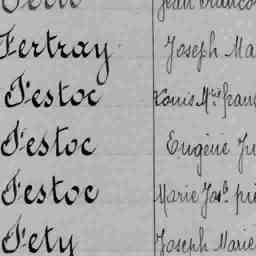 Jean Franco
Fertray Joseph Ma
Festoc Louis Mie fran
Festoc Eugène Ju
Festoc Marie Josh. pi
Fety Joseph Marie